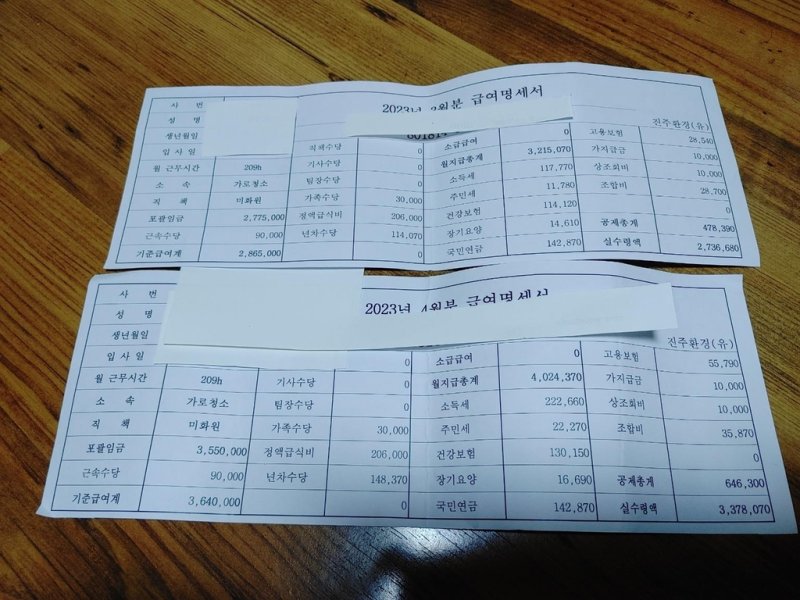 2023년 급여명세서
사 번
성 명
진주환경(유)
생년월일
입 사 일 직책수당 0 소급급여 0 고용보험 28,540
월 근무시간 209h 기사수당 0 월지급총계 3,215,070 가지급금 10,000
소 속 가로청소 팀장수당 0 소득세 117,770 상조회비 10,000
직 책 미화원 가족수당 30,000 주민세 11,780 조합비 28,700
포괄임금 2,775,000 정액급식비 206,000 건강보험 114,120 0
근속수당 90,000 년차수당 114,070 장기요양 14,610 공제총계 478,390
기준급여계 2,865,000 0 국민연금 142,870 실수령액 2,736,680
2023년 4월분 급여명세서
사 번
성 명
생년월일
진주환경(유)
입 사 일 0 소급급여 0 고용보험 55,790
월 근무시간 209h 기사수당 0 월지급총계 4,024,370 가지급금 10,000
소 속 가로청소 팀장수당 0 소득세 222,660 상조회비 10,000
직 책 미화원 가족수당 30,000 주민세 22,270 조합비 35,870
포괄임금 3,550,000 정액급식비 206,000 건강보험 130,150 0
근속수당 90,000 년차수당 148,370 장기요양 16,690 공제총계 646,300
기준급여계 3,640,000 0 국민연금 142,870 실수령액 3,378,070